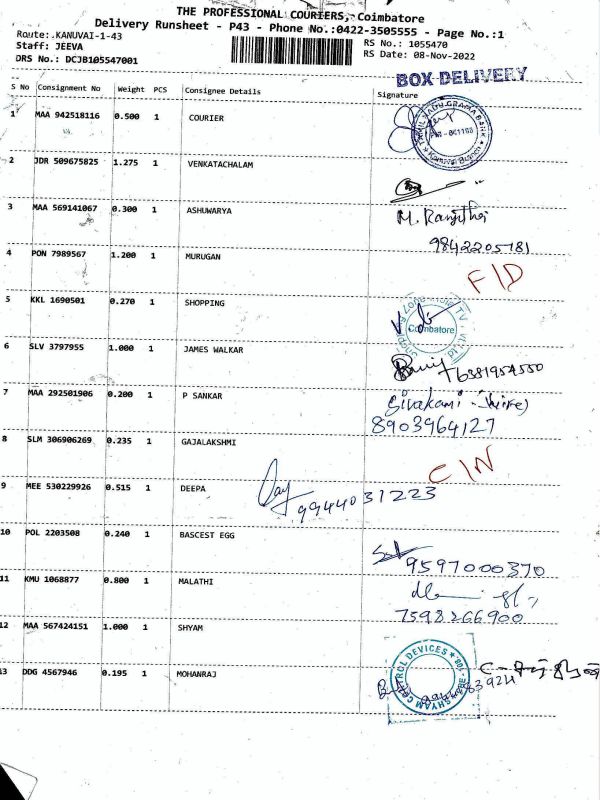 THE PROFESSIONAL COURIERS, Coimbatore
Delivery Runsheet - P43 - Phone No.:0422-3505555 - Page No.:1
Route:.KANUVAI-1-43
RS No.: 1055470
Staff: JEEVA
RS Date: 08-Nov-2022
DRS No.: DCJB105547001
BOX DELIVERY
S No Consignment No Weight PCS Consignee Details Signature
1 MAA 942518116 0.500 1 COURIER
TAMIL NADU GRAMA BANK
2 JDR 509675825 1.275 1 VENKATACHALAM
3 MAA 569141067 0.300 1 ASHUWARYA M. Ranjitha
9842205181
4 PON 7989567 1.200 1 MURUGAN F/D
5 KKL 1690501 0.270 1 SHOPPING
Coimbatore
6 SLV 3797955 1.000 1 JAMES WALKAR
6381954550
7 MAA 292501906 0.200 1 P SANKAR Sivakami - (wife)
8903964127
8 SLM 306906269 0.235 1 GAJALAKSHMI C/N
9 MEE 530229926 0.515 1 DEEPA
9944031223
10 POL 2203508 0.240 1 BASCEST EGG
9597000370
11 KMU 1068877 0.800 1 MALATHI
7598266900
12 MAA 567424151 1.000 1 SHYAM
SHYAM CONTROL DEVICES
13 DDG 4567946 0.195 1 MOHANRAJ